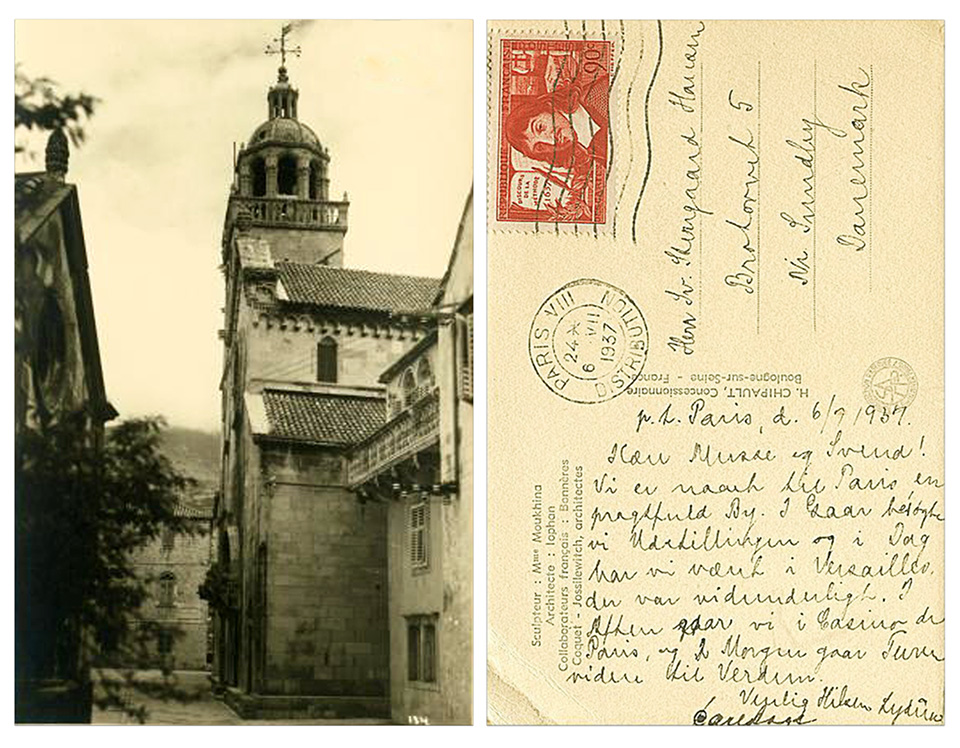 134
RÉPUBLIQUE FRANÇAISE
90c
DISCOURS
DE LA
MÉTHODE
1637
PARIS VIII
24
6 VII
1937
DISTRIBUTION
Herr Sv.
5
Nr. Sundby
Danemark
H. CHIPAULT, Concessionnaire
Boulogne-sur-Seine - France
Sculpteur : Mme Moukhina
Architecte : Iophan
Collaborateurs français : Bannères
Coquet - Jossilewitch, architectes
p.t. Paris, d. 6/7 1937.
Kære Musse og Svend!
Vi er naaet til Paris en
pragtfuld By. I Gaar besøgte
vi Udstillingen og i Dag
har vi været i Versailles,
der var vidunderligt. I
Aften gaar vi i Casino de
Paris, og I Morgen gaar Turen
videre til Verdun.
Venlig Hilsen